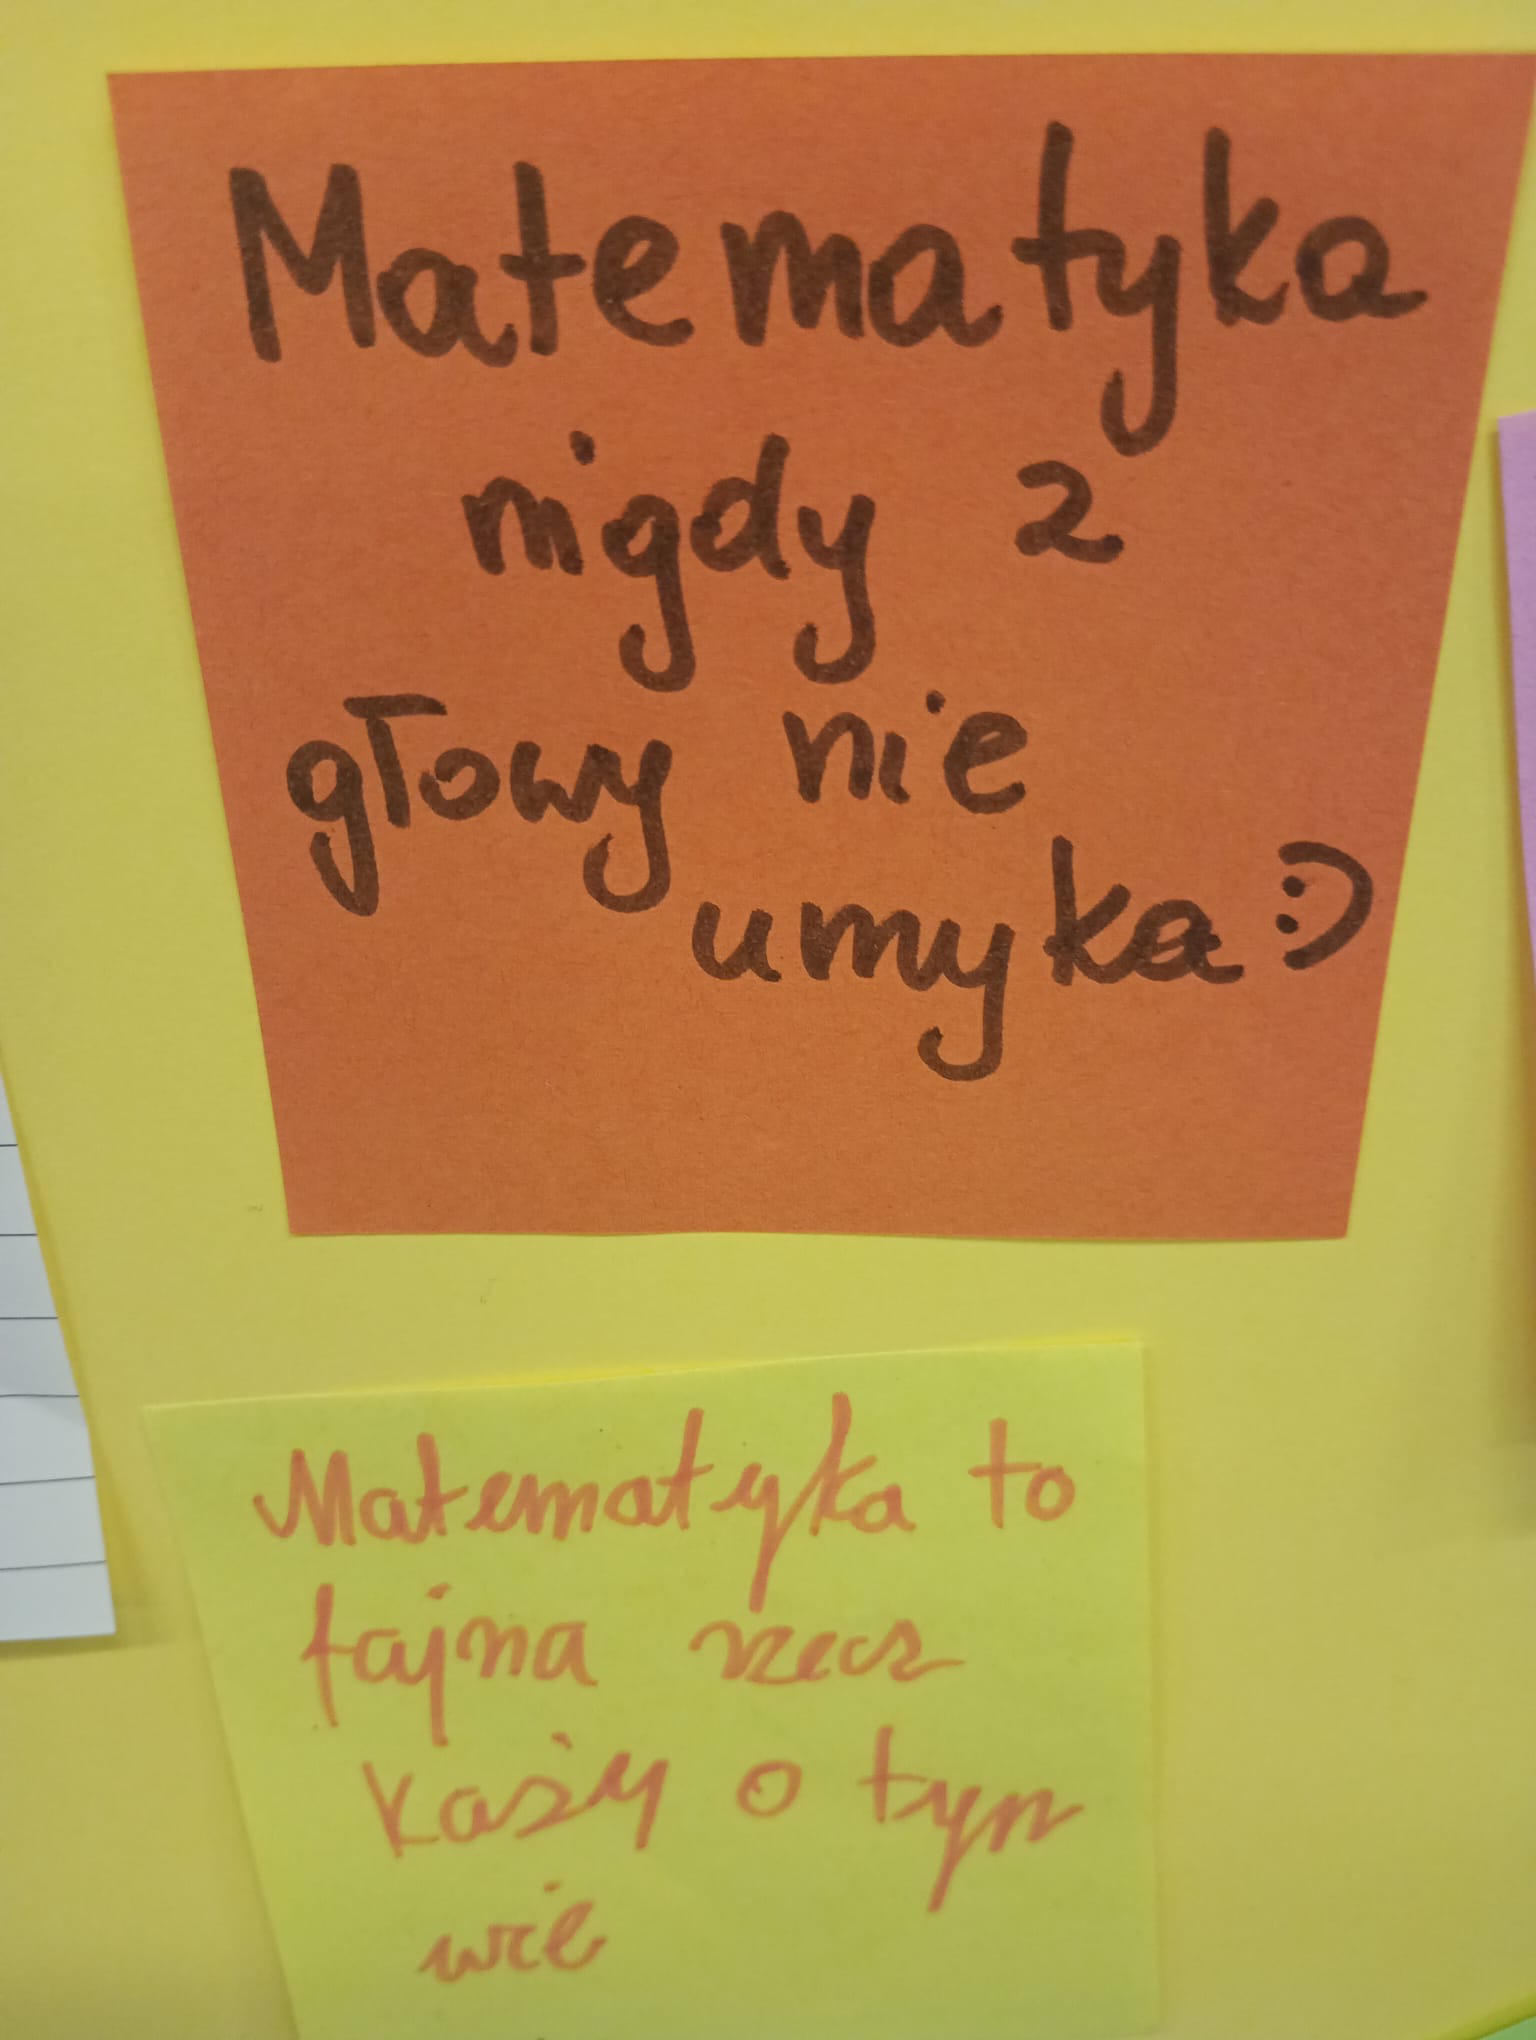 Matematyka
nigdy z
głowy nie
umyka :)
Matematyka to
fajna rzecz
każy o tym
wie